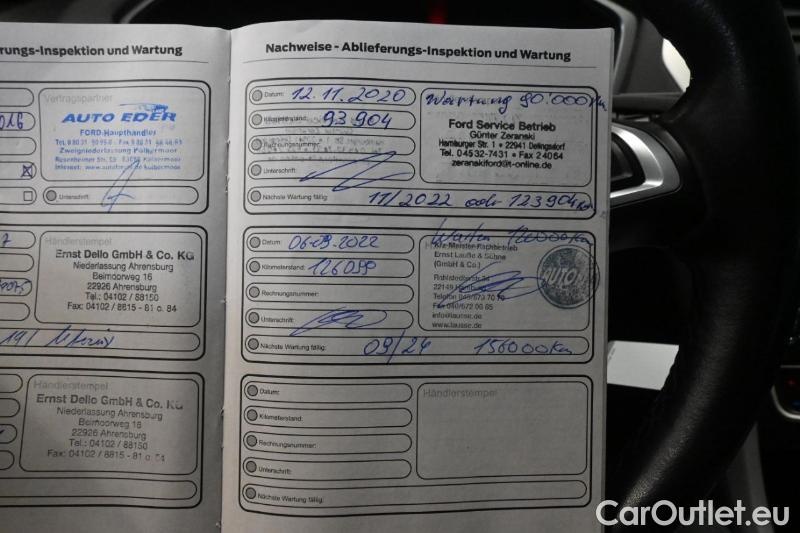 rungs-Inspektion und Wartung
Vertragspartner
AUTO EDER
FORD-Haupthändler
Zweigniederlassung Kolbermoor
Unterschrift:
Händlerstempel
Ernst Dello GmbH & Co. KG
Niederlassung Ahrensburg
Beimoorweg 16
22926 Ahrensburg
Tel.: 04102 / 88150
Fax: 04102 / 8815 - 81 o. 84
Händlerstempel
Ernst Dello GmbH & Co. KG
Niederlassung Ahrensburg
Beimoorweg 16
22926 Ahrensburg
Tel.: 04102 / 88150
Fax: 04102 / 8815 - 81 o. 84
Nachweise - Ablieferungs-Inspektion und Wartung
Datum: 12.11.2020
Kilometerstand: 93 904
Rechnungsnummer:
Unterschrift:
Nächste Wartung fällig: 11/2022 oder 123904 Km
Wartung 90.000 Km
Ford Service Betrieb
Günter Zeranski
Hamburger Str. 1 • 22941 Delingsdorf
Tel. 04532-7431 • Fax 24064
zeranskiford@t-online.de
Datum: 06.09.2022
Kilometerstand: 126099
Rechnungsnummer:
Unterschrift:
Nächste Wartung fällig: 09/24 156000 Km
Kfz-Meister-Fachbetrieb
(GmbH & Co.)
22149 Hamburg
AUTO
Datum:
Kilometerstand:
Rechnungsnummer:
Unterschrift:
Nächste Wartung fällig:
Händlerstempel
CarOutlet.eu